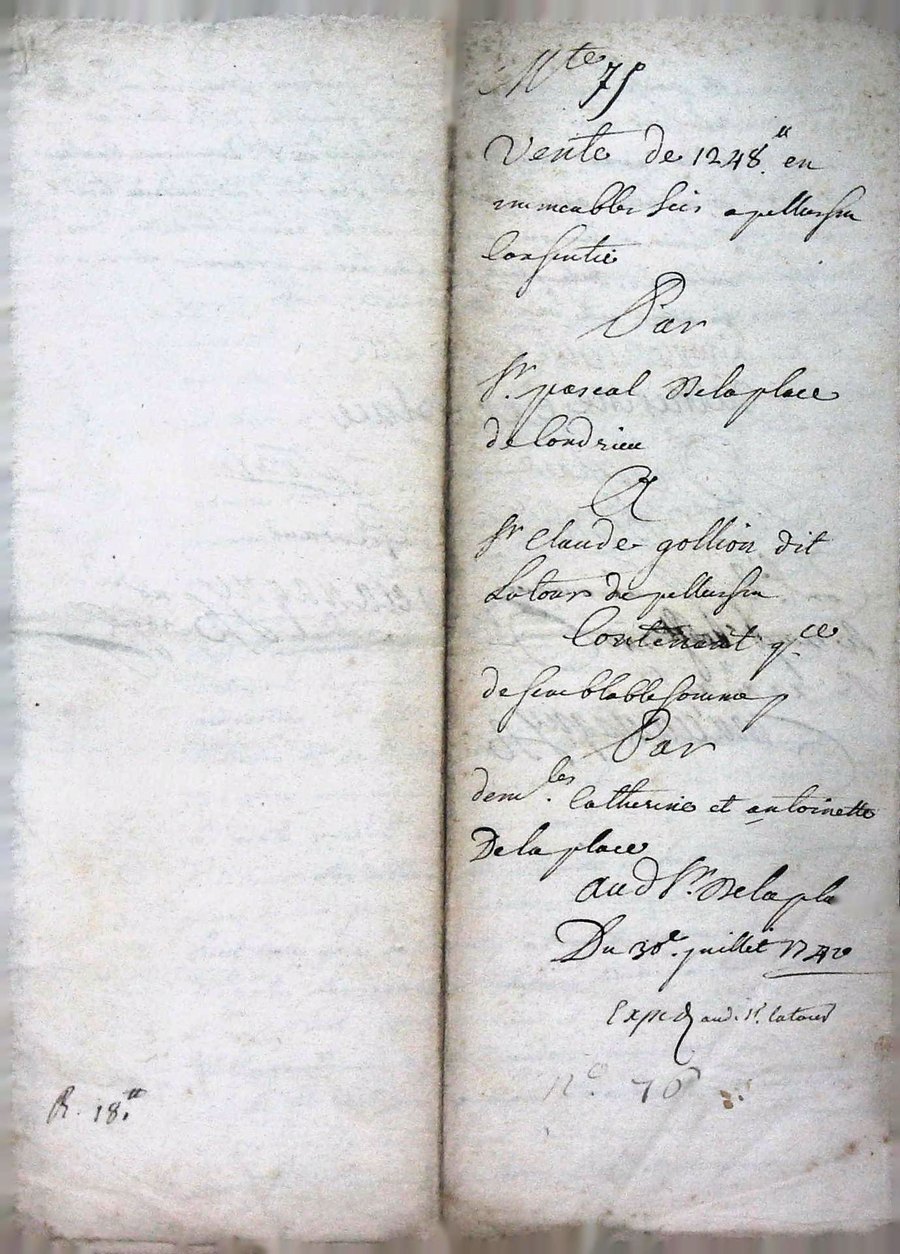 Mte 75
Vente de 1248.tt en
immeubles scis a pellussin
Consentie
Par
Sr. pascal Delaplace
de Condrieu
A
Sr Claude gollion dit
Latour de pellussin
Contenant qce
de semblable somme
Par
demlles. Catherine et antoinette
De la place
aud Sr. Delapla
Du 30e. juillet 1740
Exped aud. Sr. latour
no. 70
R. 18.tt